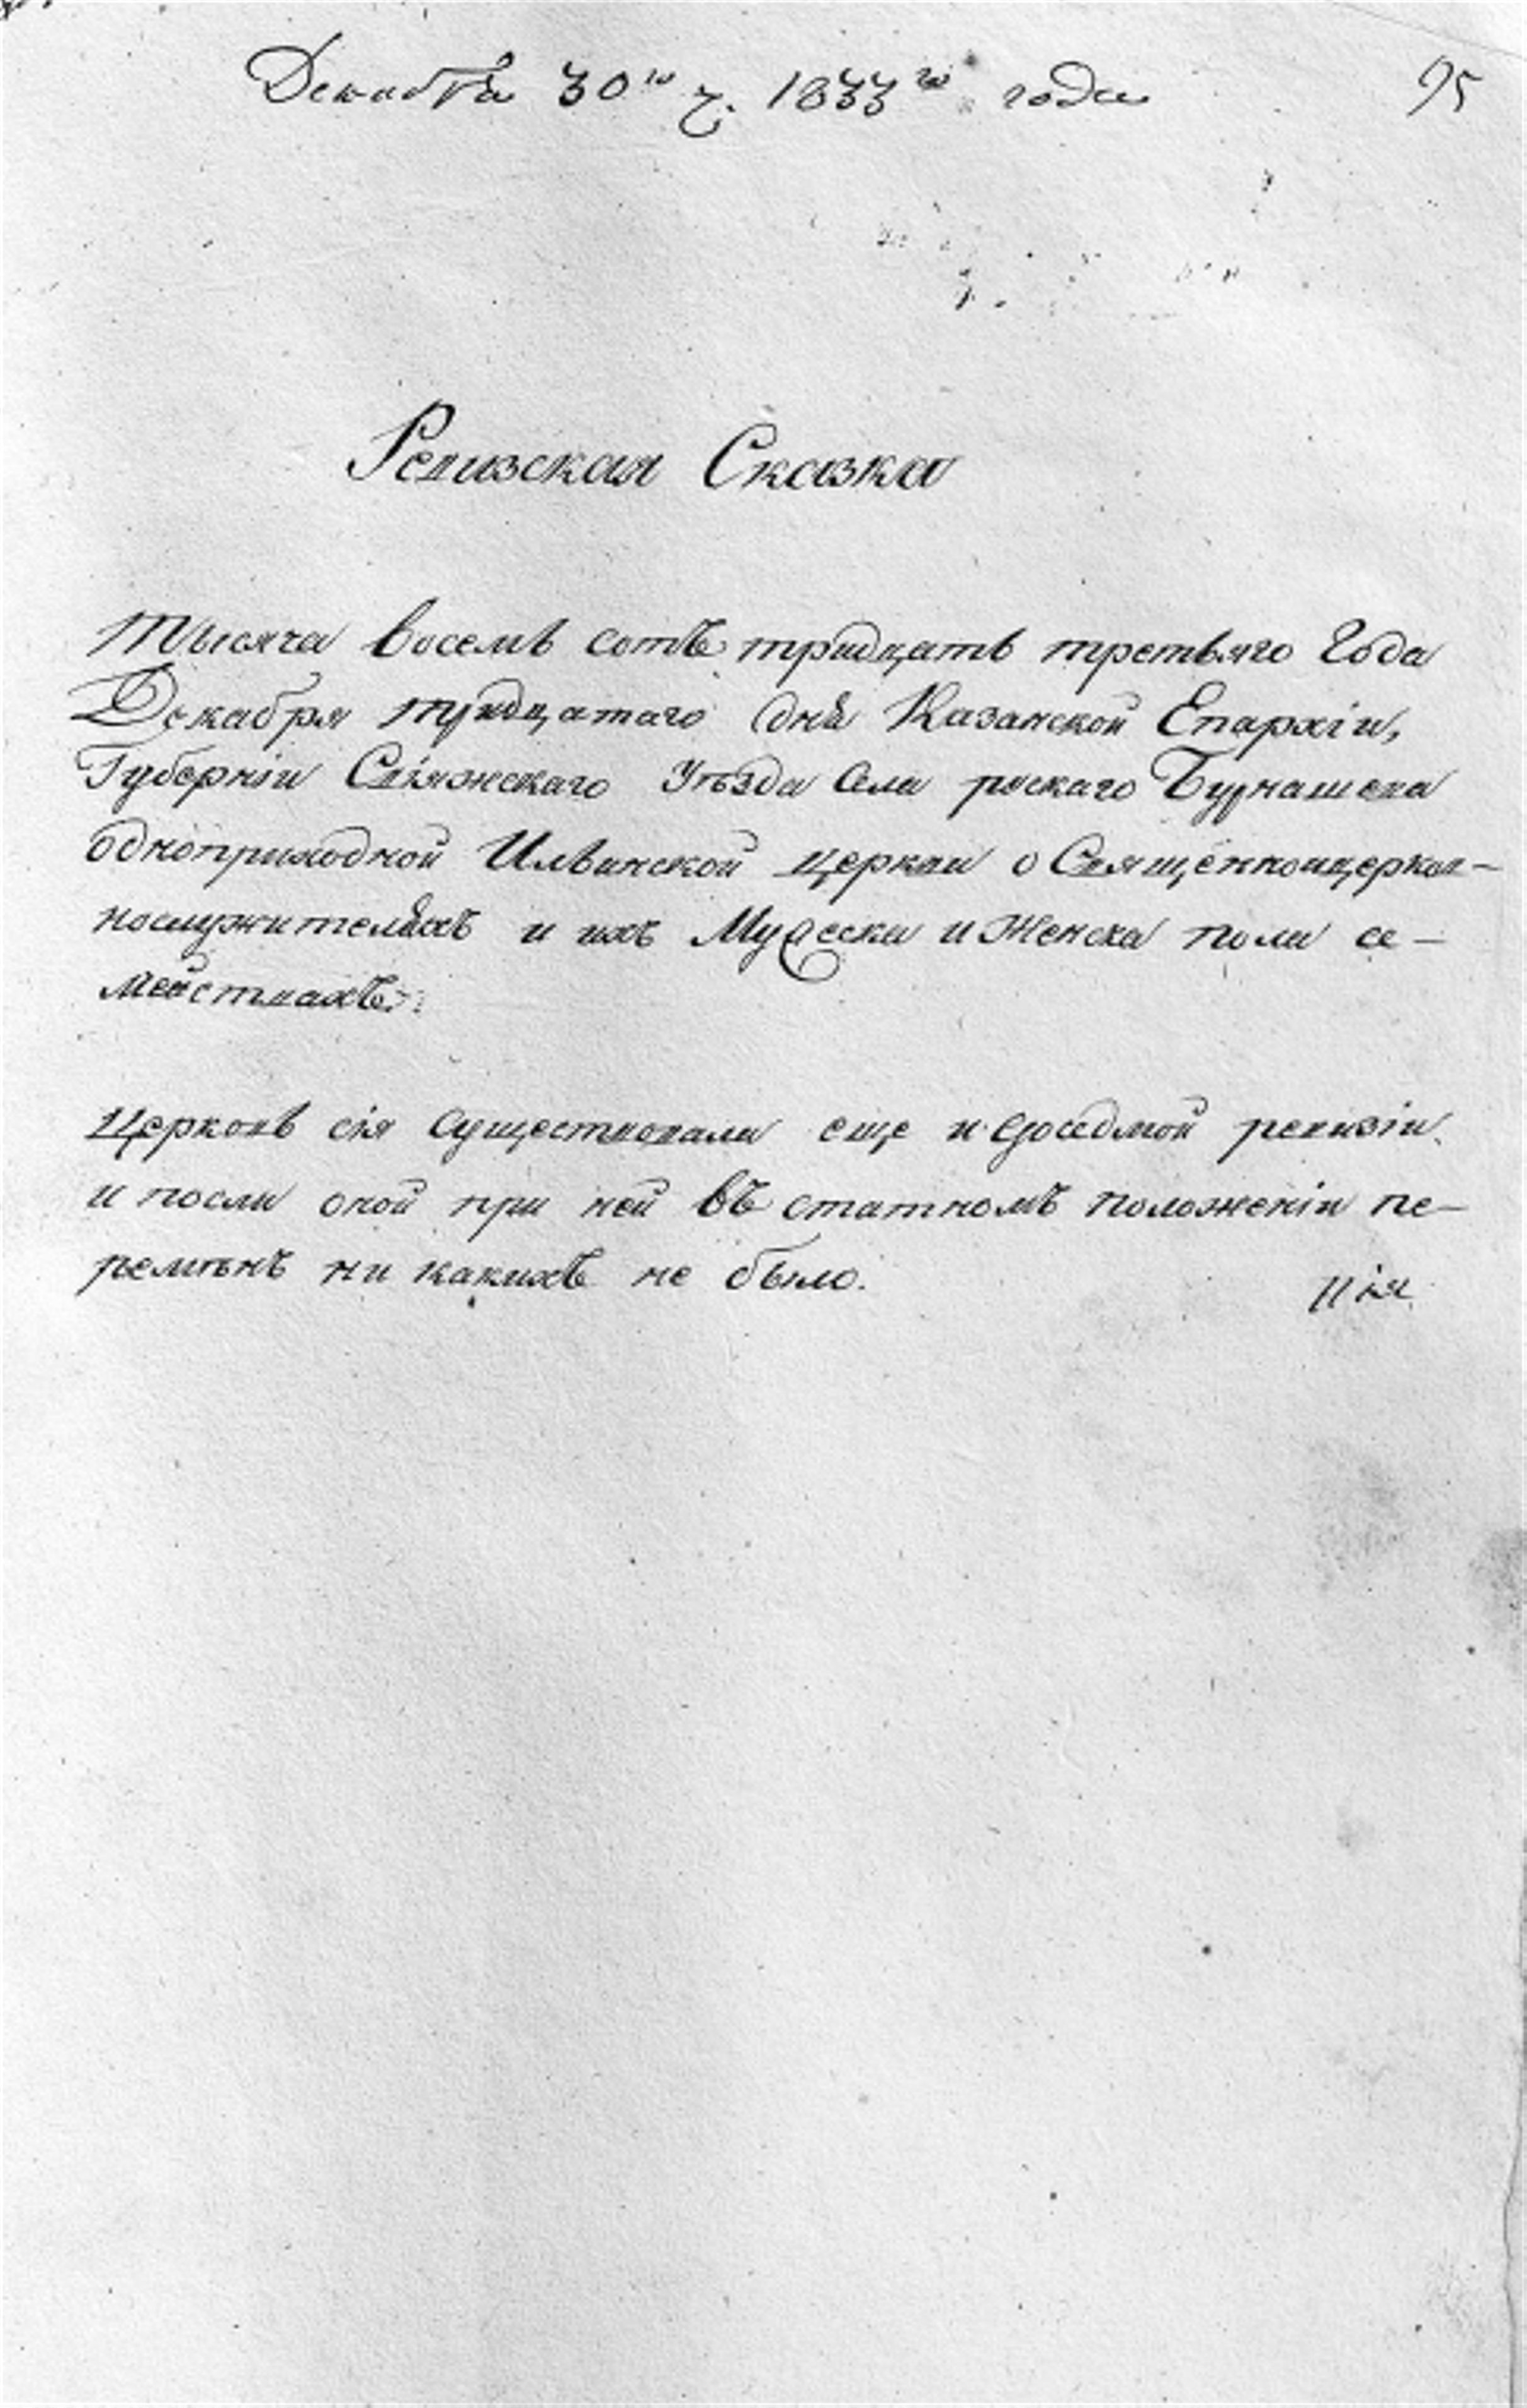 Декабря 30го ч. 1833го года
95
Ревизская Сказка
Тысяча восемь сотъ тридцать третьяго Года
Декабря тридцатаго дня Казанской Епархіи,
Губерніи Свіяжскаго Уѣзда Села рускаго Бурнашева
одноприходной Ильинской церкви о Священноцерков-
нослужителяхъ и ихъ Мужеска и Женска пола се-
мействахъ:
Церковь сія существовала еще в седмой ревизіи
и посли оной при ней въ статномъ положеніи пе-
ремѣнъ ни какихъ не было.